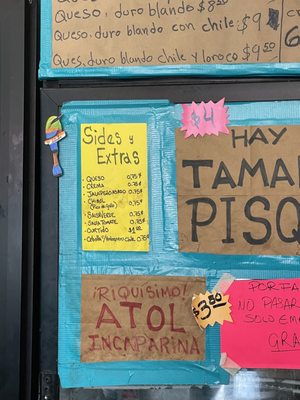 Queso, duro blando $8
Queso, duro blando con chile $9
Ques. duro blando chile y loroco $9.50
Sides y
Extras
- QUESO 0.75¢
- CREMA 0.75¢
- JALAPEÑO ASADO 0.75¢
- CHIMOL 0.75¢
(Pico de gallo)
- SALSA VERDE 0.75¢
- SALSA TOMATE 0.75¢
- CURTIDO $1.00
- Cebolla/Habanero Chile 0.75¢
$4
HAY
TAMA
PISQ
¡RIQUISIMO!
ATOL
INCAPARINA
$3.50
PORFA
NO PASAR
SOLO EM
GRA